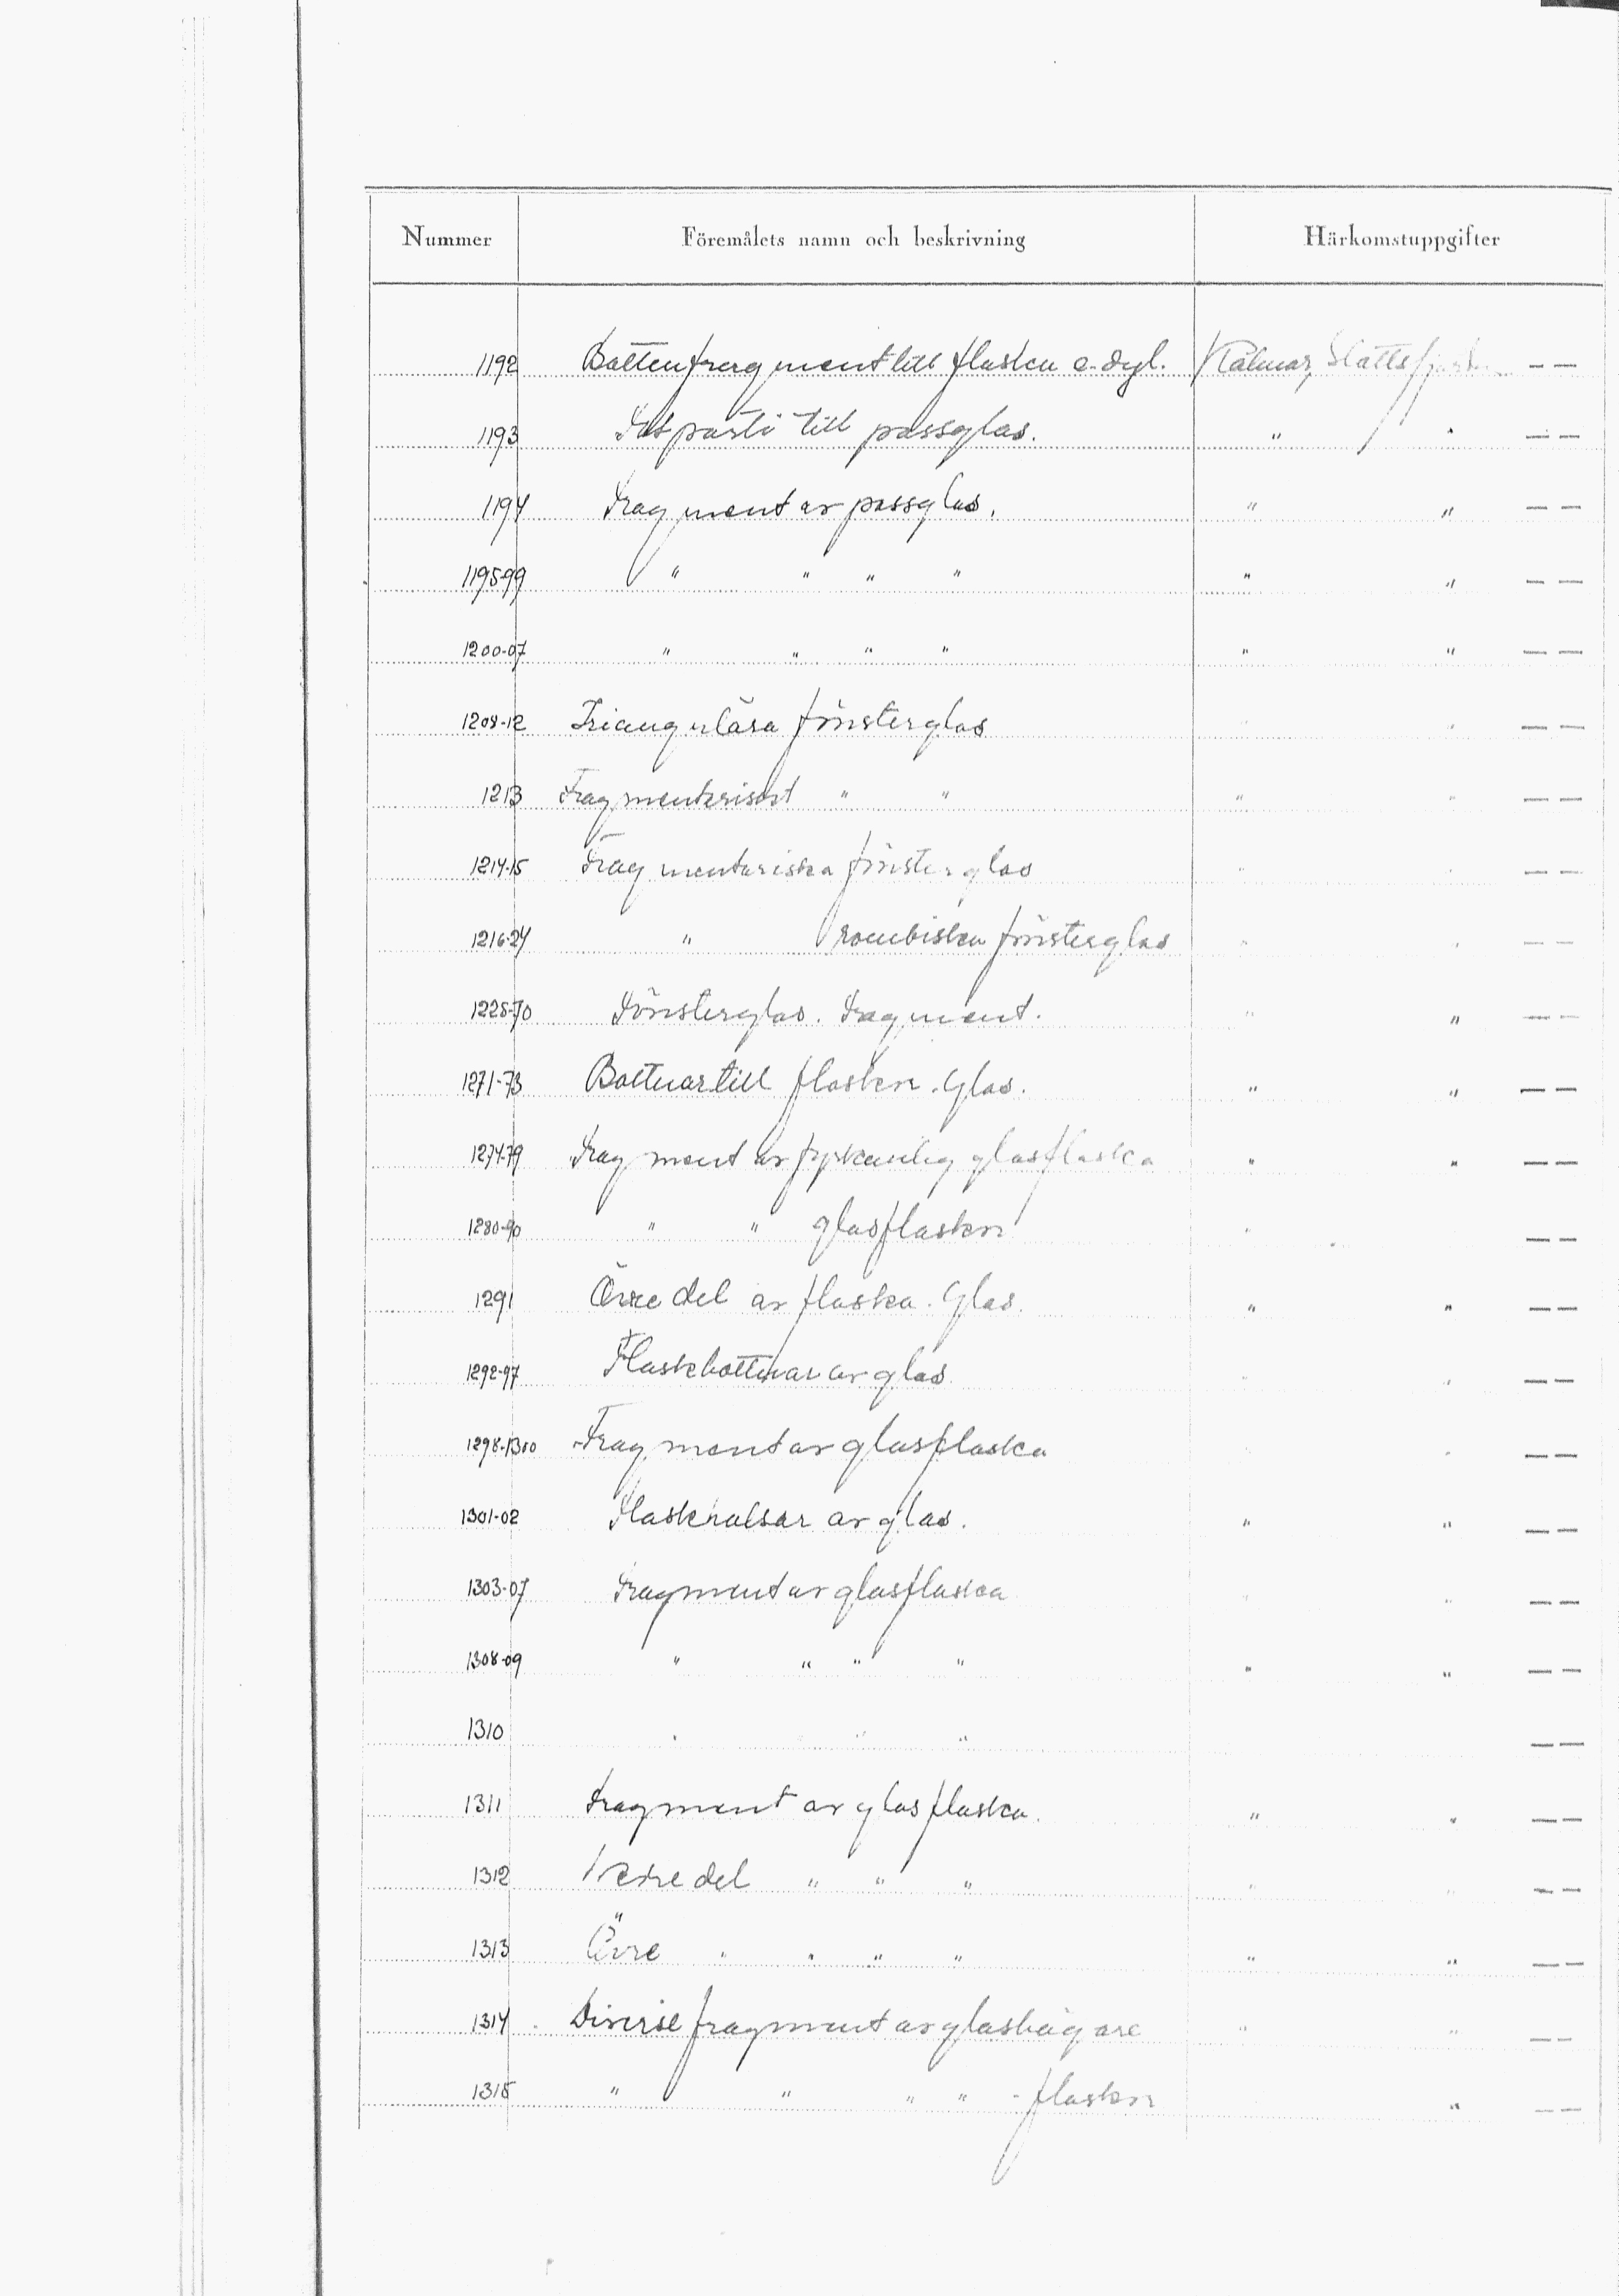 Nummer Föremålets namn och beskrivning Härkomstuppgifter
1192 Bottenfragment till flaska e. dyl. Kalmar, Slottsfjärden — —
1193 Fotparti till passglas. " " — —
1194 Fragment av passglas. " " — —
1195-99 " " " " " " — —
1200-07 " " " " " " — —
1208-12 Triangulära fönsterglas " " — —
1213 Fragmentariskt " " " " — —
1214-15 Fragmentariska fönsterglas " " — —
1216-24 " rombiska fönsterglas " " — —
1225-70 Fönsterglas. Fragment. " " — —
1271-73 Bottnar till flaskor. Glas. " " — —
1274-79 Fragment av fyrkantig glasflaska " " — —
1280-90 " " glasflaskor " " — —
1291 Övre del av flaska. Glas. " " — —
1292-97 Flaskbottnar av glas " " — —
1298-1300 Fragment av glasflaska " " — —
1301-02 Flaskhalsar av glas. " " — —
1303-07 Fragment av glasflaska " " — —
1308-09 " " " " " " — —
1310 " " " — —
1311 Fragment av glasflaska. " " — —
1312 Nedre del " " " " " — —
1313 Övre " " " " " " — —
1314 Diverse fragment av glasbägare " " — —
1315 " " " " - flaskor " — —